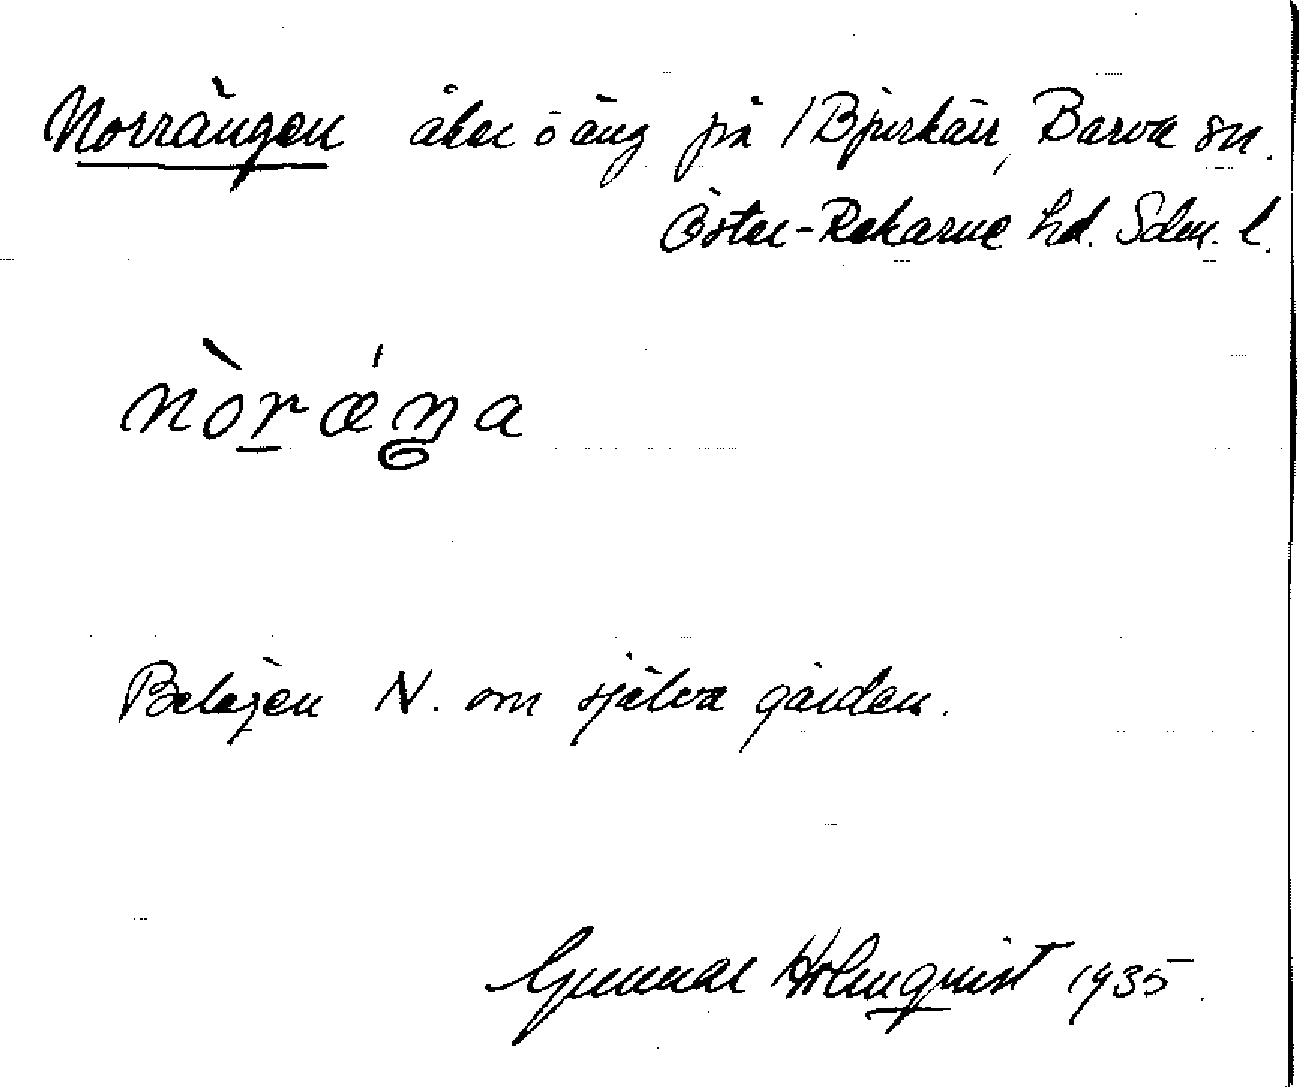 Norrängen åker o äng på /Bjurkärr, Barva sn.
Öster-Rekarne hd. Sdm. l.
nòrǽŋa
Belägen N. om själva gården.
Gunnar Holmqvist 1935